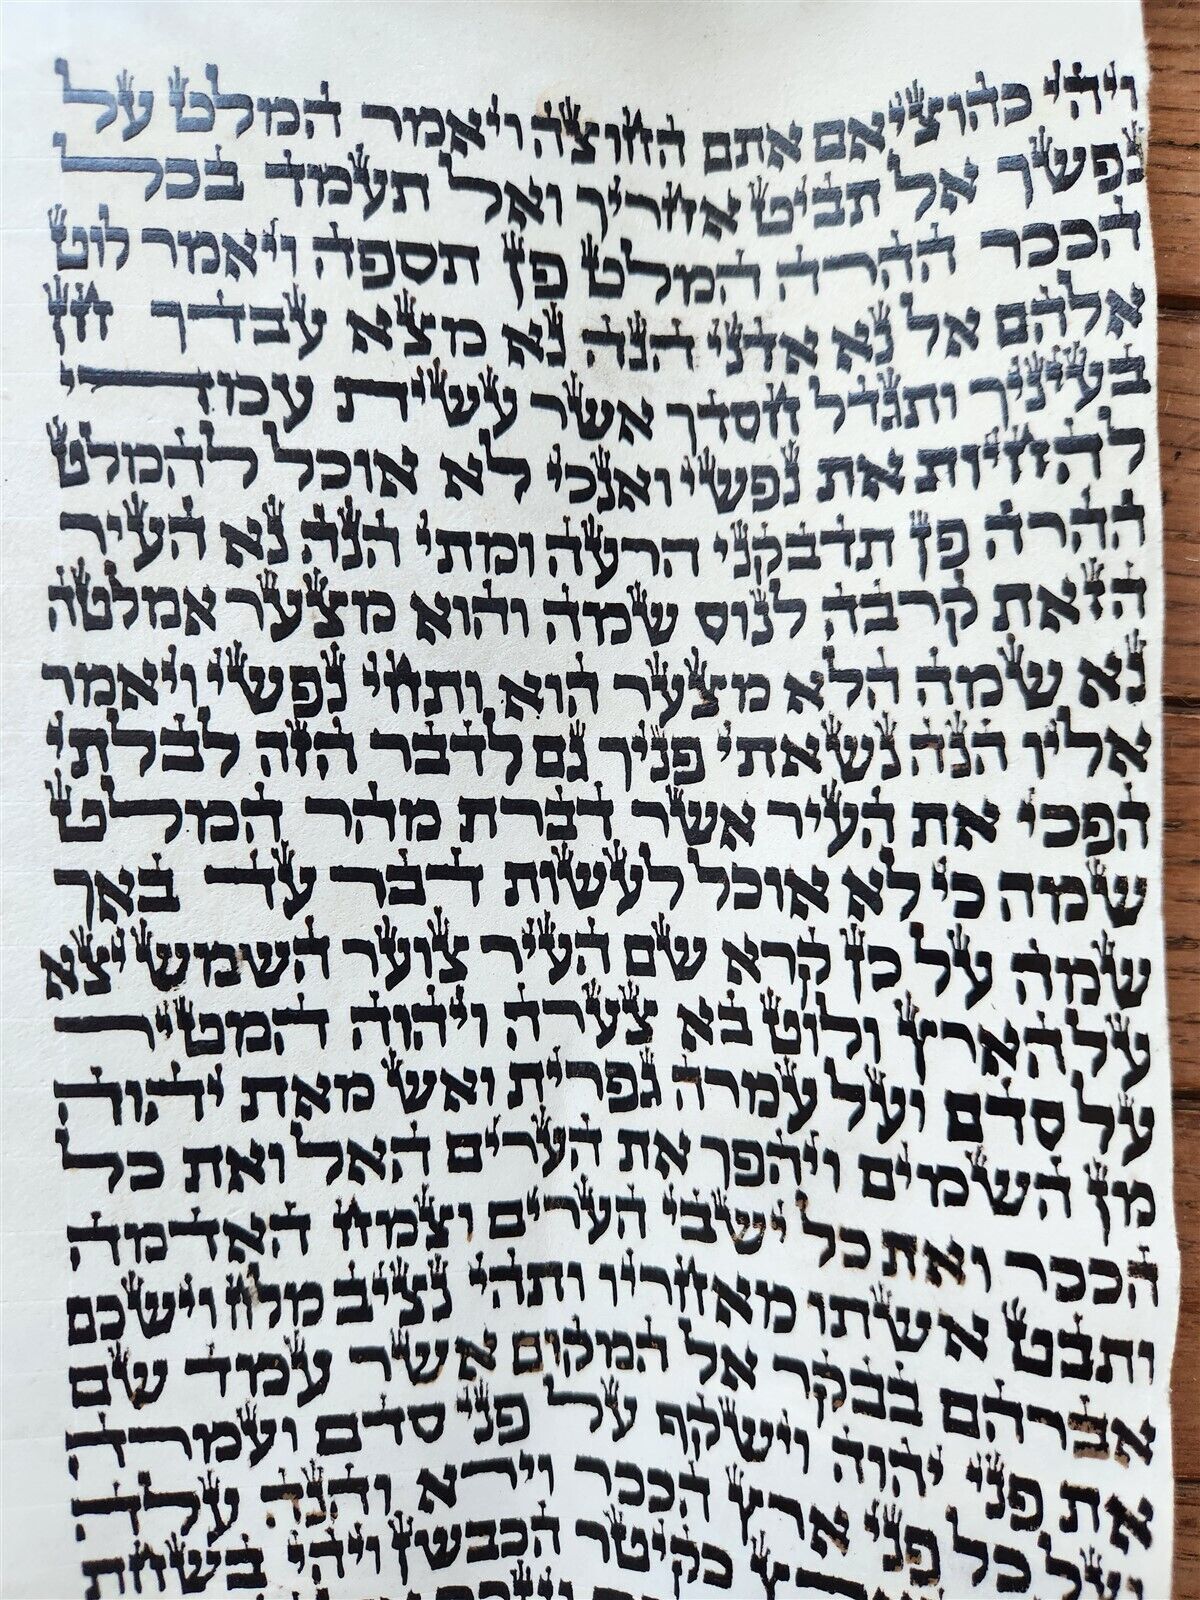 ויהי כהוציאם אתם החוצה ויאמר המלט על
נפשך אל תביט אחריך ואל תעמד בכל
הככר ההרה המלט פן תספה ויאמר לוט
אלהם אל נא אדני הנה נא מצא עבדך חן
בעיניך ותגדל חסדך אשר עשית עמדי
להחיות את נפשי ואנכי לא אוכל להמלט
ההרה פן תדבקני הרעה ומתי הנה נא העיר
הזאת קרבה לנוס שמה והוא מצער אמלטה
נא שמה הלא מצער הוא ותחי נפשי ויאמר
אליו הנה נשאתי פניך גם לדבר הזה לבלתי
הפכי את העיר אשר דברת מהר המלט
שמה כי לא אוכל לעשות דבר עד באך
שמה על כן קרא שם העיר צוער השמש יצא
על הארץ ולוט בא צערה ויהוה המטיר
על סדם ועל עמרה גפרית ואש מאת יהוה
מן השמים ויהפך את הערים האל ואת כל
הככר ואת כל ישבי הערים וצמח האדמה
ותבט אשתו מאחריו ותהי נציב מלח וישכם
אברהם בבקר אל המקום אשר עמד שם
את פני יהוה וישקף על פני סדם ועמרה
ועל כל פני ארץ הככר וירא והנה עלה
כקיטר הכבשן ויהי בשחת